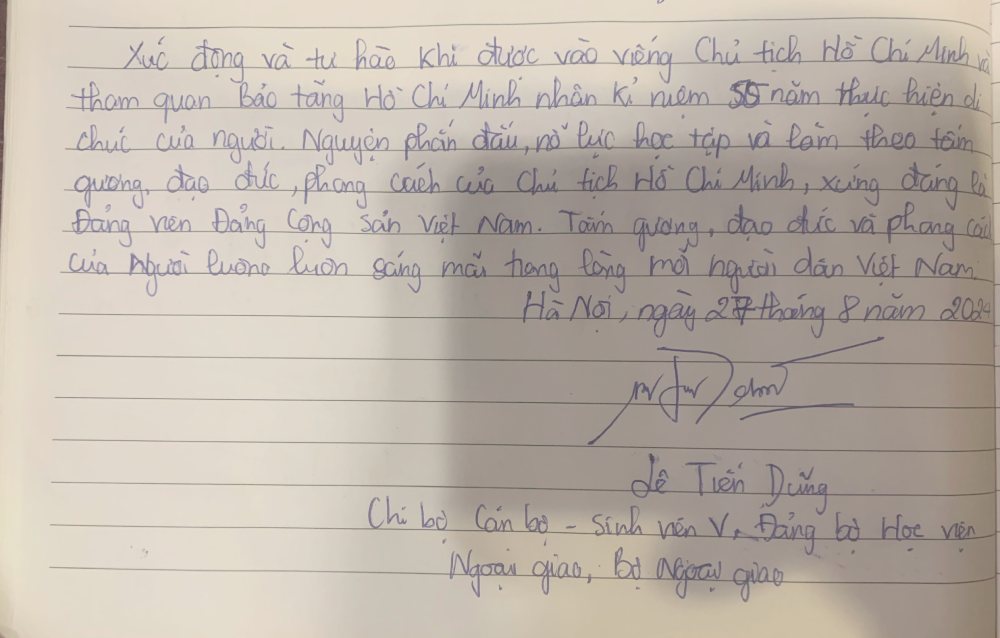 Xúc động và tự hào khi được vào viếng Chủ tịch Hồ Chí Minh và
tham quan Bảo tàng Hồ Chí Minh nhân kỉ niệm 55 năm thực hiện di
chúc của người. Nguyện phấn đấu, nỗ lực học tập và làm theo tấm
gương, đạo đức, phong cách của Chủ tịch Hồ Chí Minh, xứng đáng là
Đảng viên Đảng Cộng sản Việt Nam. Tấm gương, đạo đức và phong các
của Người luông luôn sáng mãi trong lòng mỗi người dân Việt Nam.
Hà Nội, ngày 27 tháng 8 năm 2024
Lê Tiến Dũng
Chi bộ Cán bộ - Sinh viên V, Đảng bộ Học viện
Ngoại giao, Bộ Ngoại giao